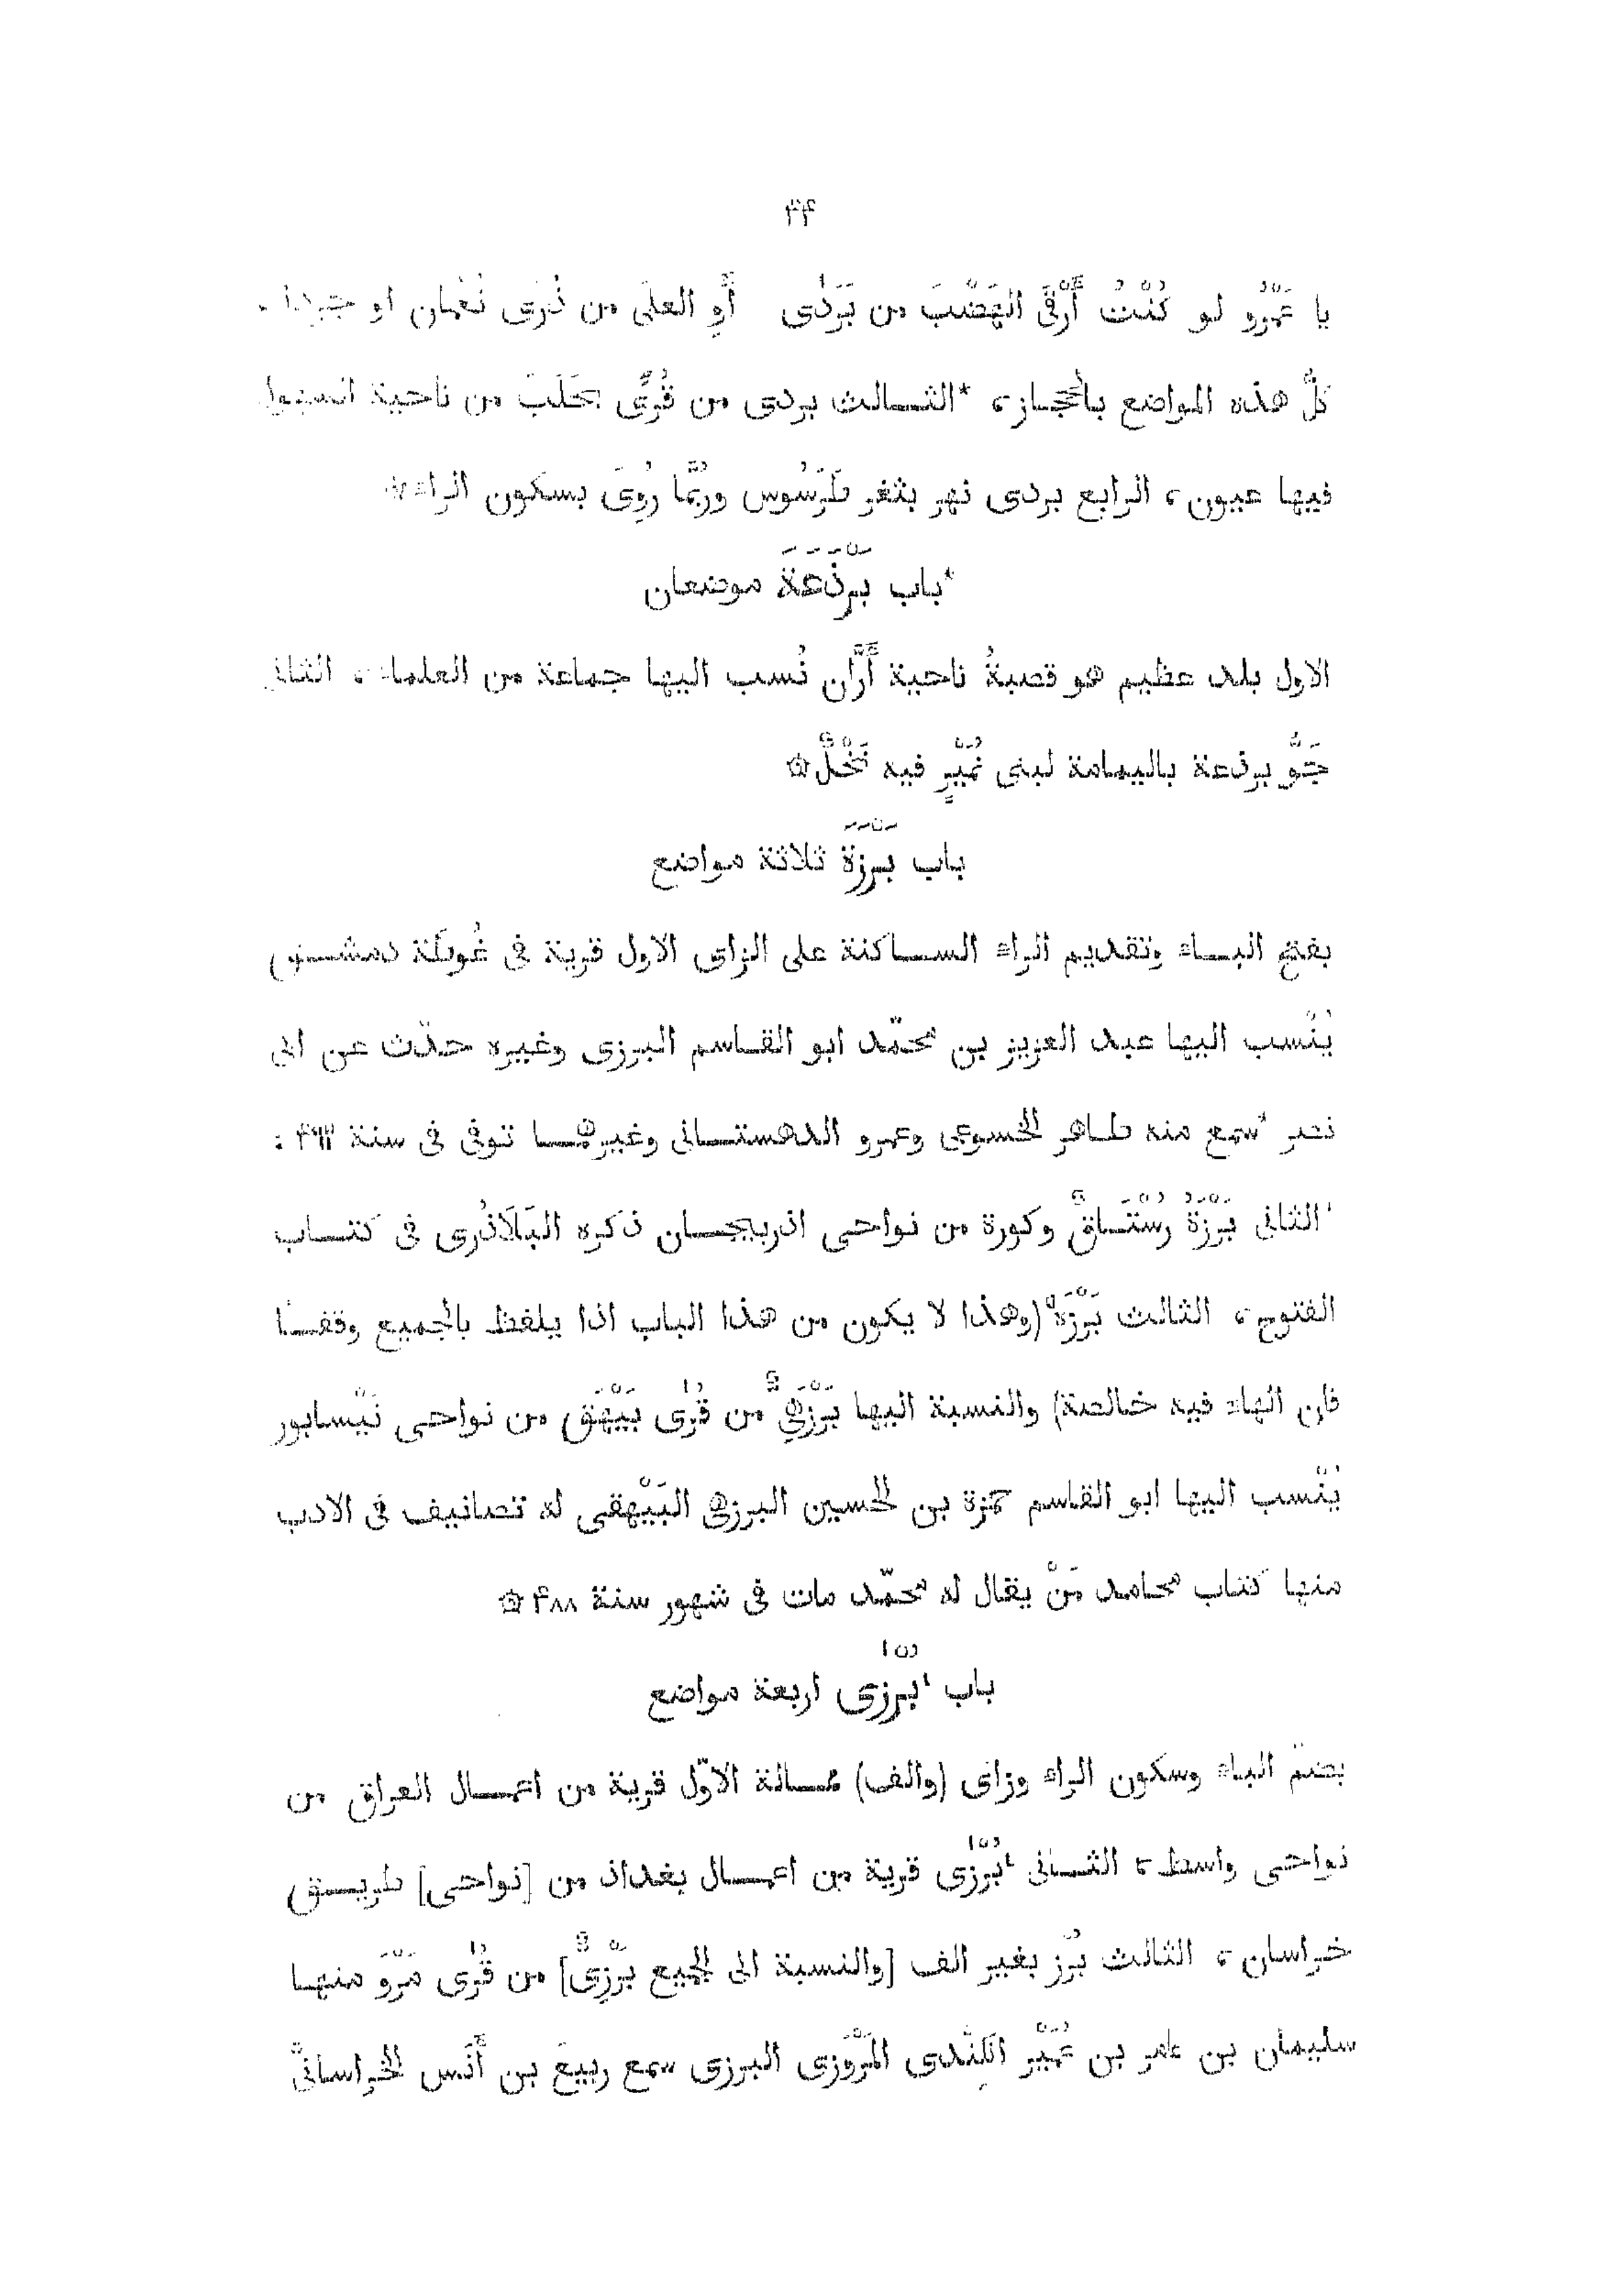 ٣۴
يا عَمْرُو لو كُنْتُ أَرْقَى الهَضْبَ من بَرَدَى أَوِ العلَى من ذُرَى نُعْمان او
كلُّ هذه المواضع بالحجاز، *الثالث بردى من قُرًى بحَلَبَ من ناحية
فيها عيون، الرابع بردى نهر بثغر طَرَسُوس ورُبّما رُوِىَ بسكون الراء ۞
*باب بَرْذَعَةَ موضعان
الاول بلد عظيم هو قصبةُ ناحية أَرَّان نُسب اليها جماعة من العلماء، الثانى
جَوُّ برذعة باليمامة لبنى نُمَيْرٍ فيه نَخْلٌ ۞
باب بَرْزَةَ ثلاثة مواضع
بفتح الباء وتقديم الراء الساكنة على الزاى الاول قرية فى غُوطَة دمشق
يُنْسب اليها عبد العزيز بن محمّد ابو القاسم البرزى وغيره حدّث عن ابى
نصر سمع منه طاهر الخسوعى وعمرو الدهستانى وغيرهما توفى فى سنة
الثانى بَرْزَةُ رُسْتَاقٌ وكورة من نواحى اذربيجان ذكره البَلَاذُرى فى كتاب
الفتوح، الثالث بَرْزَهْ (وهذا لا يكون من هذا الباب اذا يلفظ بالجميع وقفًا
فان الهاء فيه خالصة) والنسبة اليها بَرْزَهِىٌّ من قُرَى بَيْهَق من نواحى نَيْسابور
يُنْسب اليها ابو القاسم حمزة بن الحسين البرزهى البَيْهقى له تصانيف فى الادب
منها كتاب محامد مَنْ يقال له محمّد مات فى شهور سنة ۴٨٨ ۞
باب بُرْزَى اربعة مواضع
بضمّ الباء وسكون الراء وزاى (والف) ممالة الاوّل قرية من اعمال العراق من
نواحى واسط، الثانى بُرْزَى قرية من اعمال بغداد من [نواحى] طريق
خراسان، الثالث بُرْز بغير الف [والنسبة الى الجميع بُرْزِىٌّ] من قُرَى مَرْوَ منها
سليمان بن عامر بن عُمَيْر الكِنْدى المَرْوَزى البرزى سمع ربيعَ بن أَنَس الخراسانىَّ